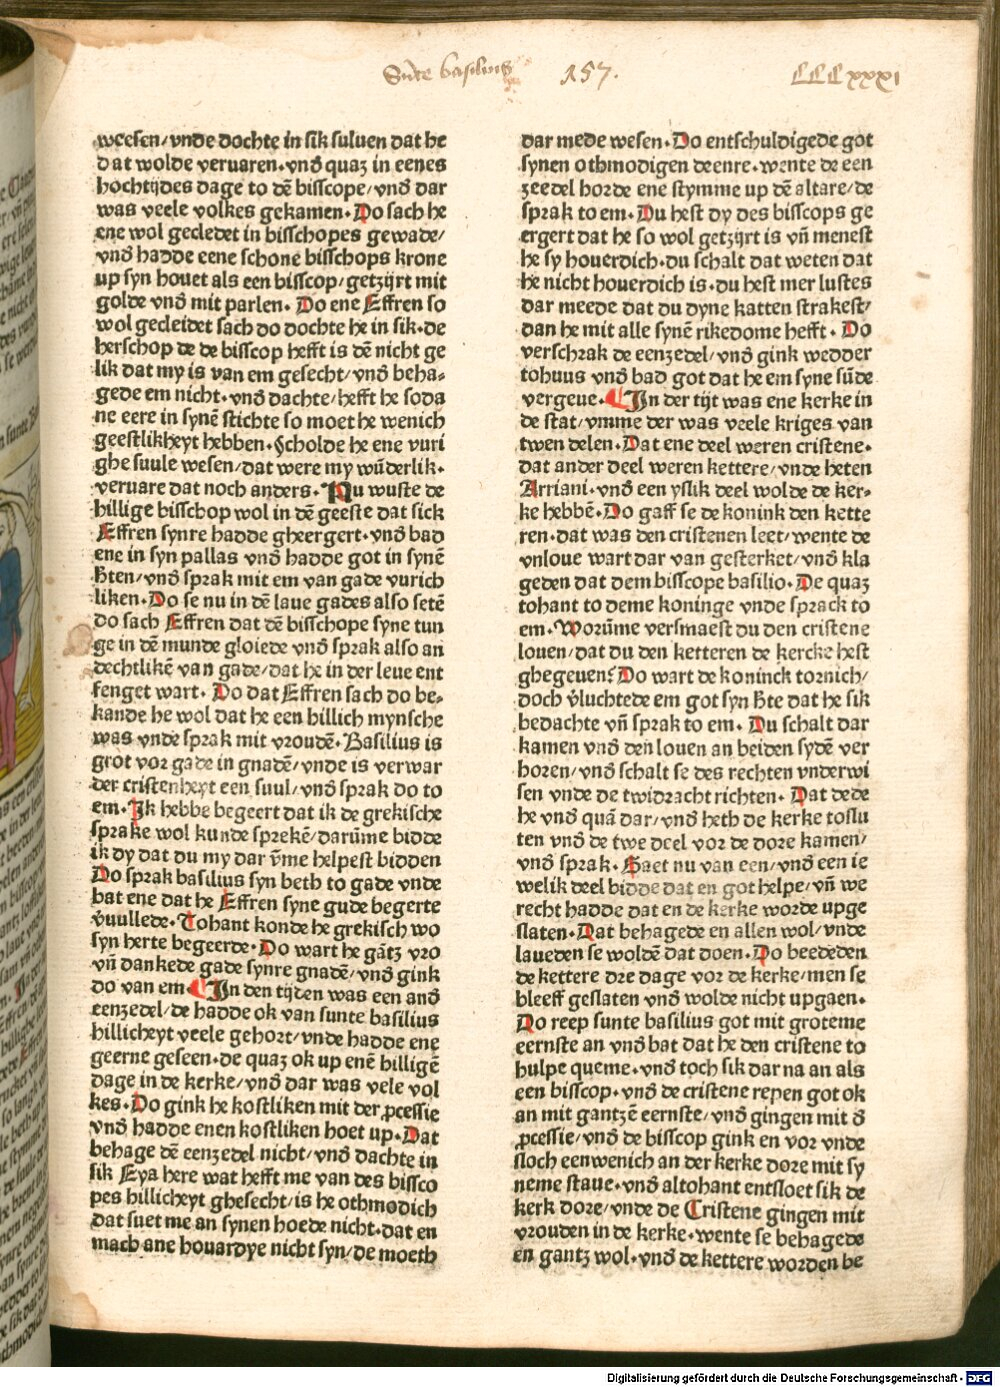 Sūte basilius 157. CCCxxxi
weesen/vnde dochte in sik suluen dat he
dat wolde veruaren·vnd̄ quaz in eenes
hochtijdes dage to dē bisscope/vnd̄ dar
was veele volkes gekamen·Do sach he
ene wol gecledet in bisschopes gewade/
vnd̄ hadde eene schone bisschops krone
up syn houet als een bisscop/getzijrt mit
golde vnd̄ mit parlen·Do ene Effren so
wol gecleidet sach do dochte he in sik·de
herschop de de bisscop hefft is dē nicht ge
lik dat my is van em gesecht/vnd̄ beha-
gede em nicht·vnd̄ dachte/hefft he soda
ne eere in synē stichte so moet he wenich
geestlikheyt hebben·Scholde he ene vuri
ghe suule wesen/dat were my wūderlik·
veruare dat noch anders·Nu wuste de
hillige bisschop wol in dē geeste dat sick
Effren synre hadde gheergert·vnd̄ bad
ene in syn pallas vnd̄ hadde got in synē
h̄ten/vnd̄ sprak mit em van gade vurich
liken·Do se nu in dē laue gades also setē
do sach Effren dat dē bisschope syne tun
ge in dē munde gloiede vnd̄ sprak also an
dechtlikē van gade/dat he in der leue ent
fenget wart·Do dat Effren sach do be-
kande he wol dat he een hillich mynsche
was vnde sprak mit vroudē·Basilius is
grot vor gade in gnadē/vnde is verwar
der cristenheyt een suul/vnd̄ sprak do to
em·Ik hebbe begeert dat ik de grekische
sprake wol kunde sprekē/darūme bidde
ik dy dat du my dar v̄me helpest bidden
Do sprak basilius syn beth to gade vnde
bat ene dat he Effren syne gude begerte
v̄uullede·Tohant konde he grekisch wo
syn herte begeerde·Do wart he gātz vro
vn̄ dankede gade synre gnadē/vnd̄ gink
do van em·In den tijden was een and̄
eenzedel/de hadde ok van sunte basilius
hillicheyt veele gehort/vnde hadde ene
geerne geseen·de quaz ok up enē billigē
dage in de kerke/vnd̄ dar was vele vol
kes·Do gink he kostliken mit der ꝓcessie
vnd̄ hadde enen kostliken hoet up·Dat
behage dē eenzedel nicht/vnd̄ dachte in
sik Eya here wat hefft me van des bissco
pes hillicheyt ghesecht/is he othmodich
dat suet me an synen hoede nicht·dat en
mach ane houardye nicht syn/de moeth
dar mede wesen·Do entschuldigede got
synen othmodigen deenre·wente de een
zeedel horde ene stymme up dē altare/de
sprak to em·Du hest dy des bisscops ge
ergert dat he so wol getzijrt is vn̄ menest
he sy houerdich·du schalt dat weten dat
he nicht houerdich is·du hest mer lustes
dar meede dat du dyne katten strakest/
dan he mit alle synē rikedome hefft·Do
verschrak de eenzedel/vnd̄ gink wedder
tohuus vnd̄ bad got dat he em syne sūde
vergeue·In der tijt was ene kerke in
de stat/vmme der was veele kriges van
twen delen·Dat ene deel weren cristene·
dat ander deel weren kettere/vnde heten
Arriani·vnd̄ een yslik deel wolde de ker-
ke hebbē·Do gaff se de konink den kette
ren·dat was den cristenen leet/wente de
vnloue wart dar van gesterket/vnd̄ kla
geden dat dem bisscope basilio·De quaz
tohant to deme koninge vnde sprack to
em·Worūme versmaest du den cristene
louen/dat du den ketteren de kercke hest
ghegeuen?Do wart de koninck tornich/
doch v̄luchtede em got syn h̄te dat he sik
bedachte vn̄ sprak to em·Du schalt dar
kamen vnd̄ den louen an beiden sydē ver
horen/vnd̄ schalt se des rechten vnderwi
sen vnde de twidracht richten·Dat dede
he vnd̄ quā dar/vnd̄ heth de kerke toslu
ten vnd̄ de twe deel vor de dore kamen/
vnd̄ sprak·Gaet nu van een/vnd̄ een ie
welik deel bidde dat en got helpe/vn̄ we
recht hadde dat en de kerke worde upge
slaten·Dat behagede en allen wol/vnde
laueden se woldē dat doen·Do beededen
de kettere dre dage vor de kerke/men se
bleeff geslaten vnd̄ wolde nicht upgaen·
Do reep sunte basilius got mit groteme
eernste an vnd̄ bat dat he den cristene to
hulpe queme·vnd̄ toch sik dar na an als
een bisscop·vnd̄ de cristene repen got ok
an mit gantzē eernste/vnd̄ gingen mit d̄
ꝓcessie/vnd̄ de bisscop gink en vor vnde
sloch eenwenich an der kerke dore mit sy
neme staue·vnd̄ altohant entsloet sik de
kerk dore/vnde de Cristene gingen mit
vrouden in de kerke·wente se behagede
en gantz wol·vnd̄ de kettere worden be
Digitalisierung gefördert durch die Deutsche Forschungsgemeinschaft - DFG